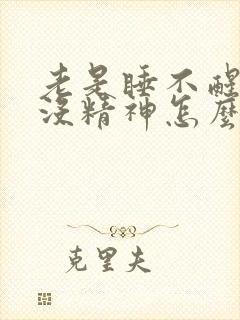 老是睡不醒
没精神怎麼
克里夫